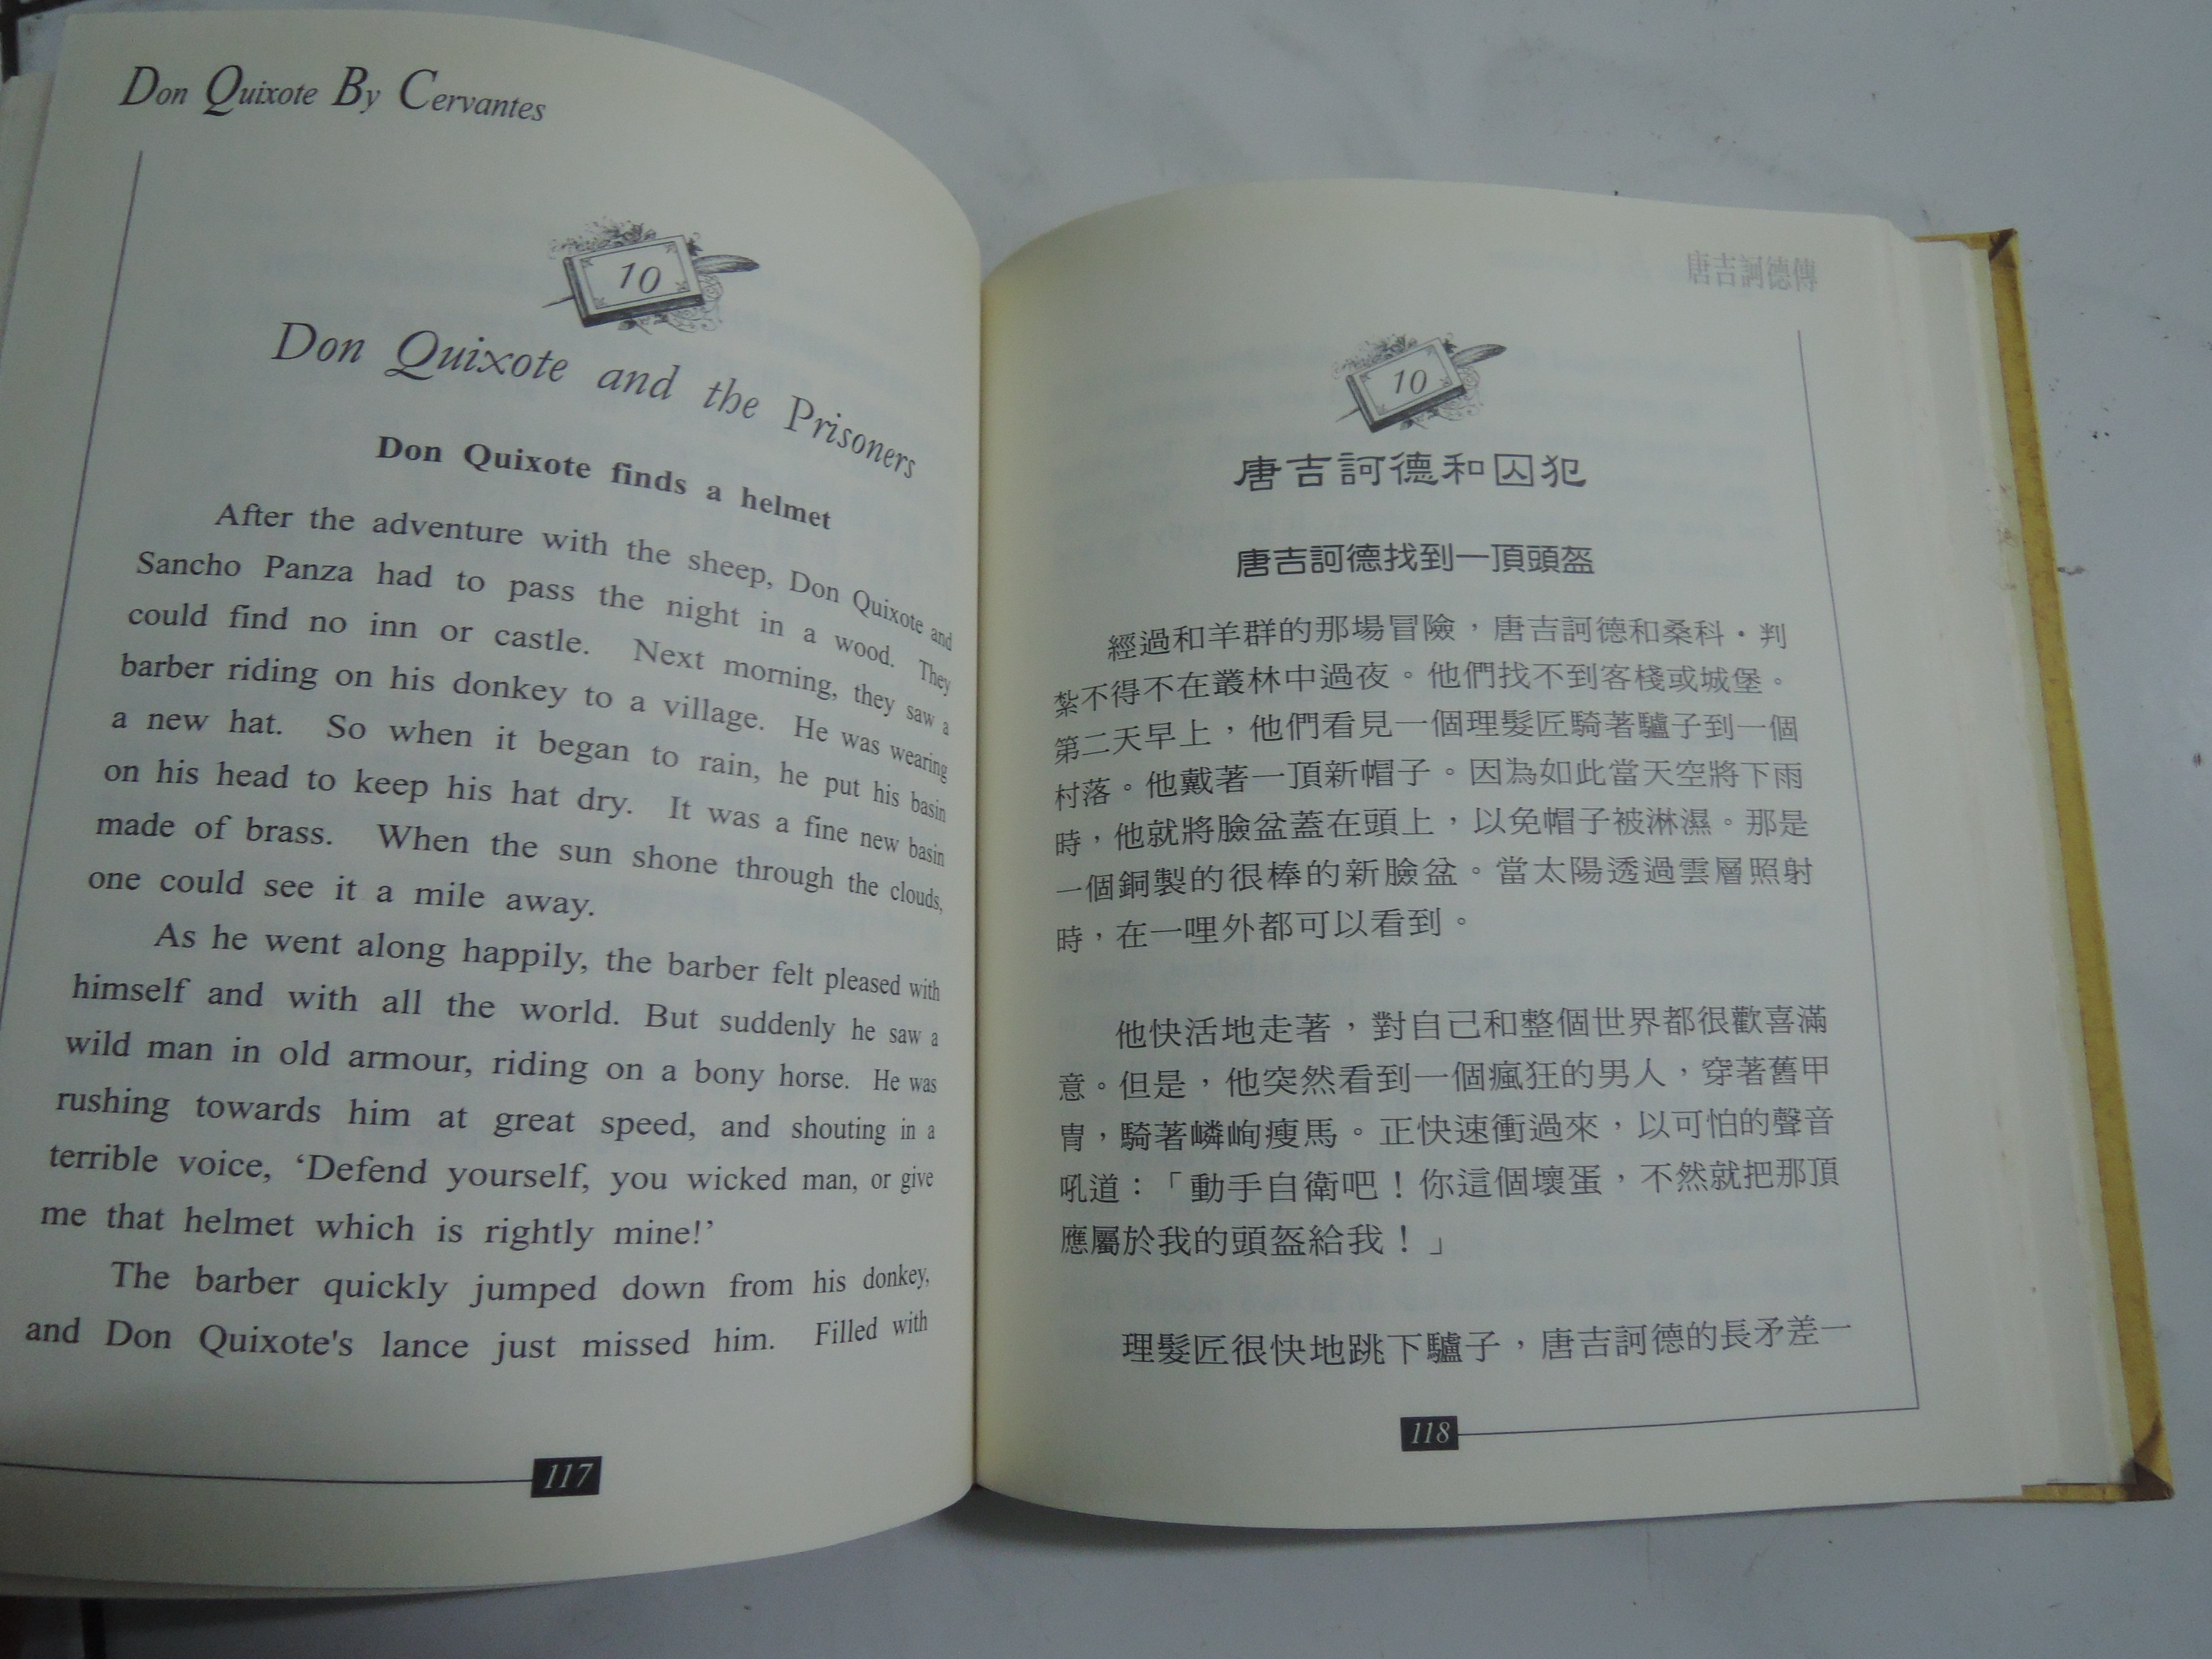 Don Quixote By Cervantes
10
Don Quixote and the Prisoners
Don Quixote finds a helmet
After the adventure with the sheep, Don Quixote and
Sancho Panza had to pass the night in a wood. They
could find no inn or castle. Next morning, they saw a
barber riding on his donkey to a village. He was wearing
a new hat. So when it began to rain, he put his basin
on his head to keep his hat dry. It was a fine new basin
made of brass. When the sun shone through the clouds,
one could see it a mile away.
As he went along happily, the barber felt pleased with
himself and with all the world. But suddenly he saw a
wild man in old armour, riding on a bony horse. He was
rushing towards him at great speed, and shouting in a
terrible voice, ‘Defend yourself, you wicked man, or give
me that helmet which is rightly mine!’
The barber quickly jumped down from his donkey,
and Don Quixote's lance just missed him. Filled with
117
唐吉訶德傳
10
唐吉訶德和囚犯
唐吉訶德找到一頂頭盔
經過和羊群的那場冒險，唐吉訶德和桑科・判
紮不得不在叢林中過夜。他們找不到客棧或城堡。
第二天早上，他們看見一個理髮匠騎著驢子到一個
村落。他戴著一頂新帽子。因為如此當天空將下雨
時，他就將臉盆蓋在頭上，以免帽子被淋濕。那是
一個銅製的很棒的新臉盆。當太陽透過雲層照射
時，在一哩外都可以看到。
他快活地走著，對自己和整個世界都很歡喜滿
意。但是，他突然看到一個瘋狂的男人，穿著舊甲
冑，騎著嶙峋瘦馬。正快速衝過來，以可怕的聲音
吼道：「動手自衛吧！你這個壞蛋，不然就把那頂
應屬於我的頭盔給我！」
理髮匠很快地跳下驢子，唐吉訶德的長矛差一
118